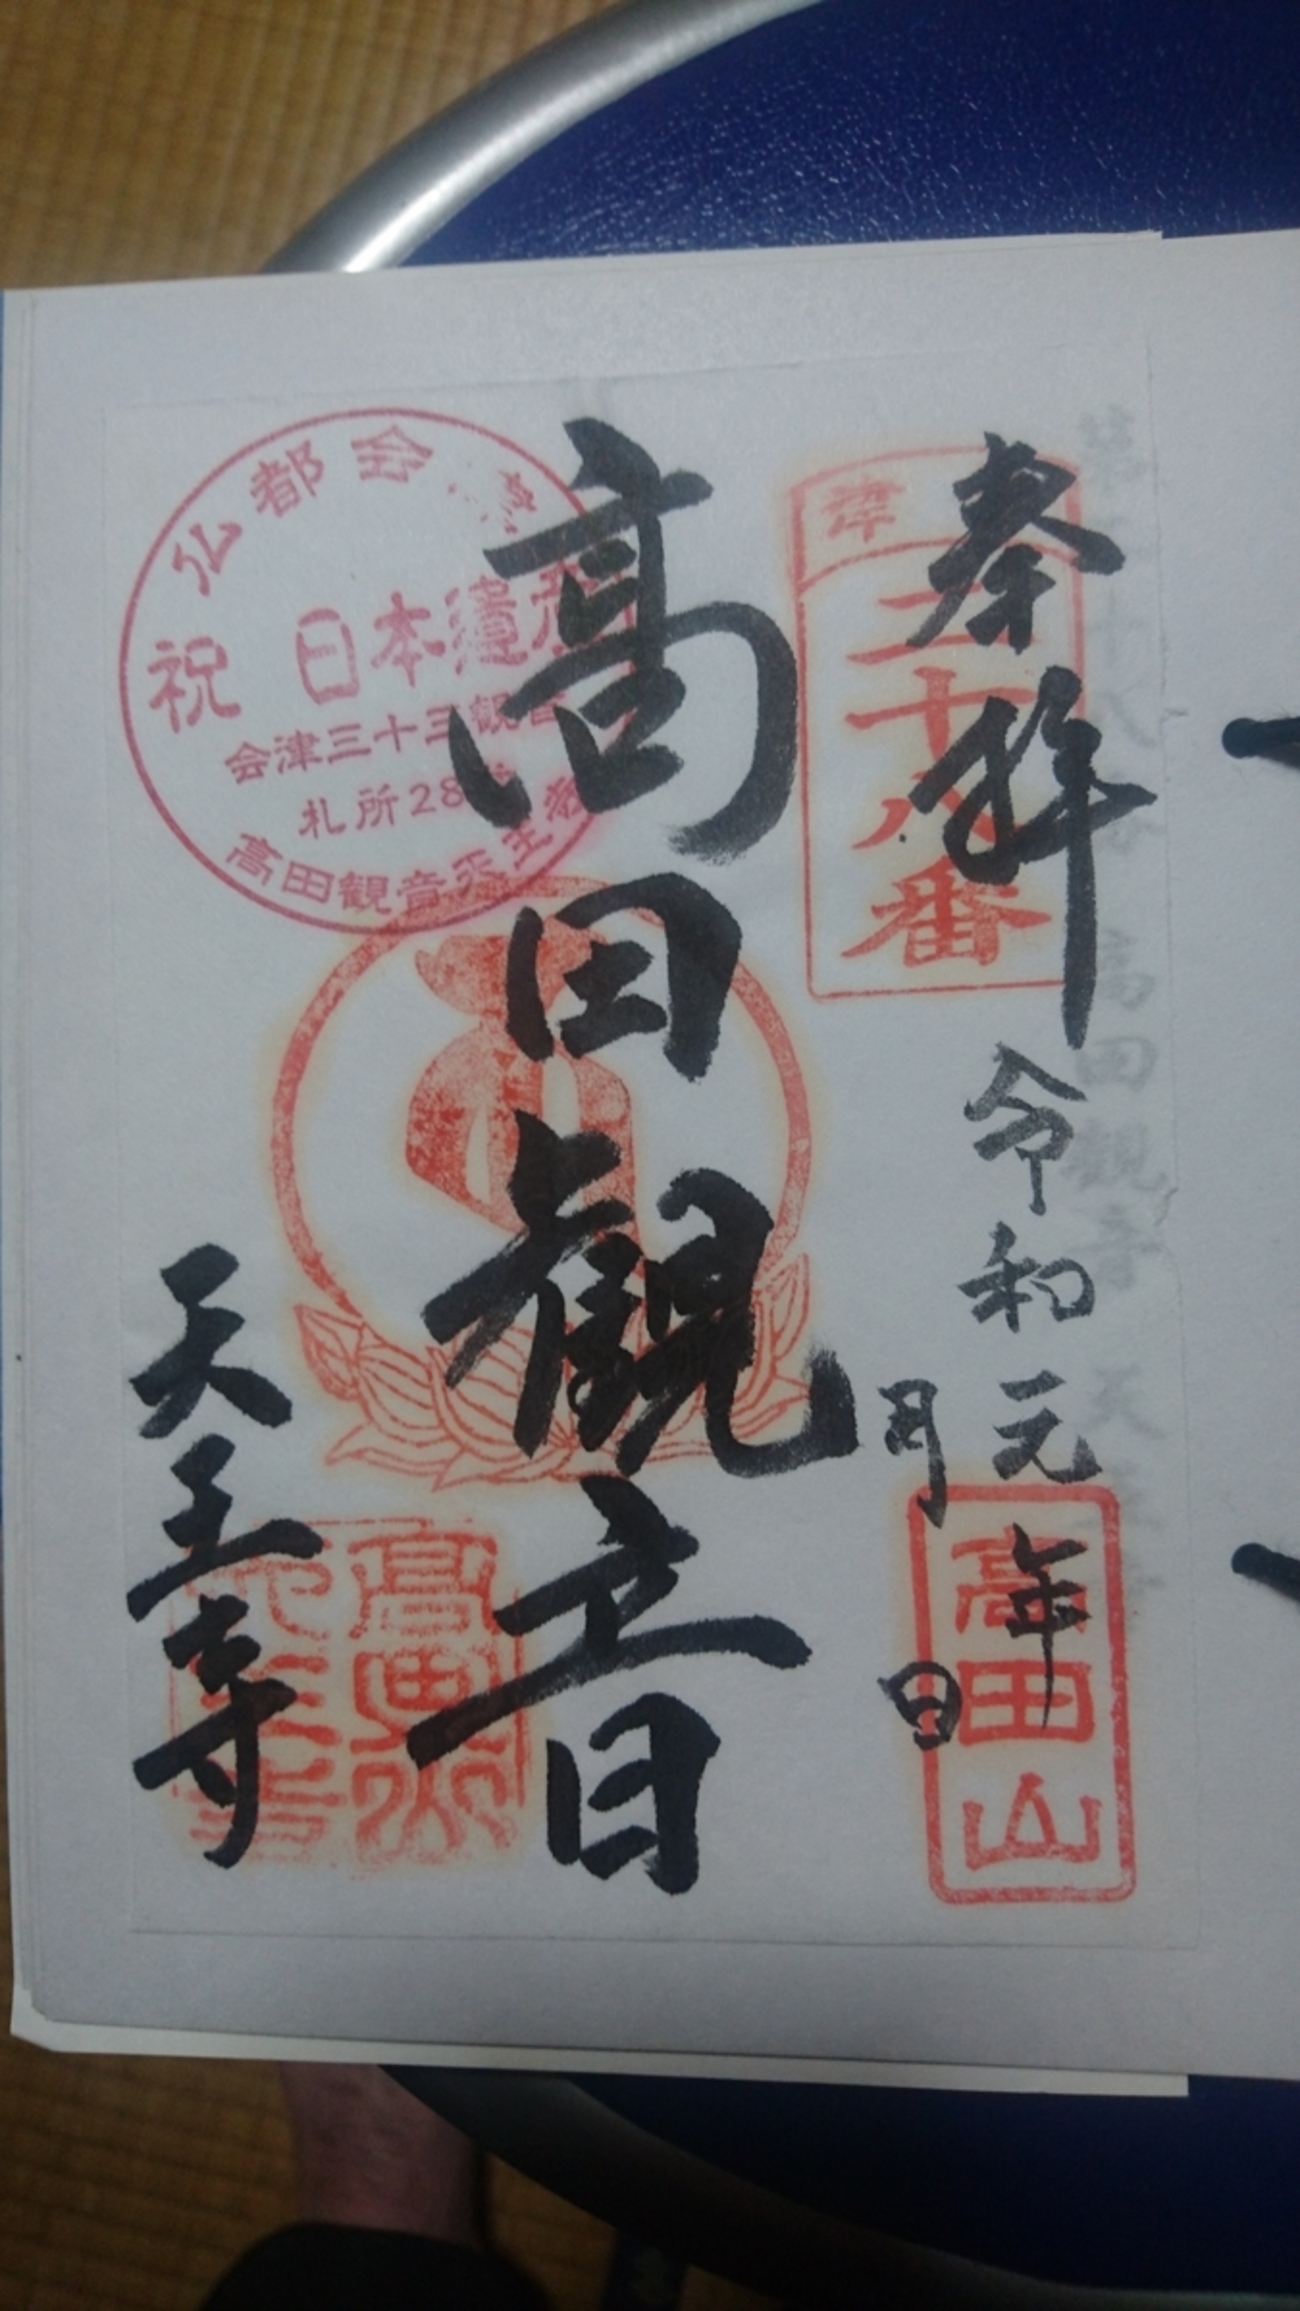 奉拝
令和元年
月
日
津
二十八番
高田山
高田観音
天王寺
仏都会
祝
日本遺産
会津三十三観音
札所28
高田観音天王寺
高田山
天王寺